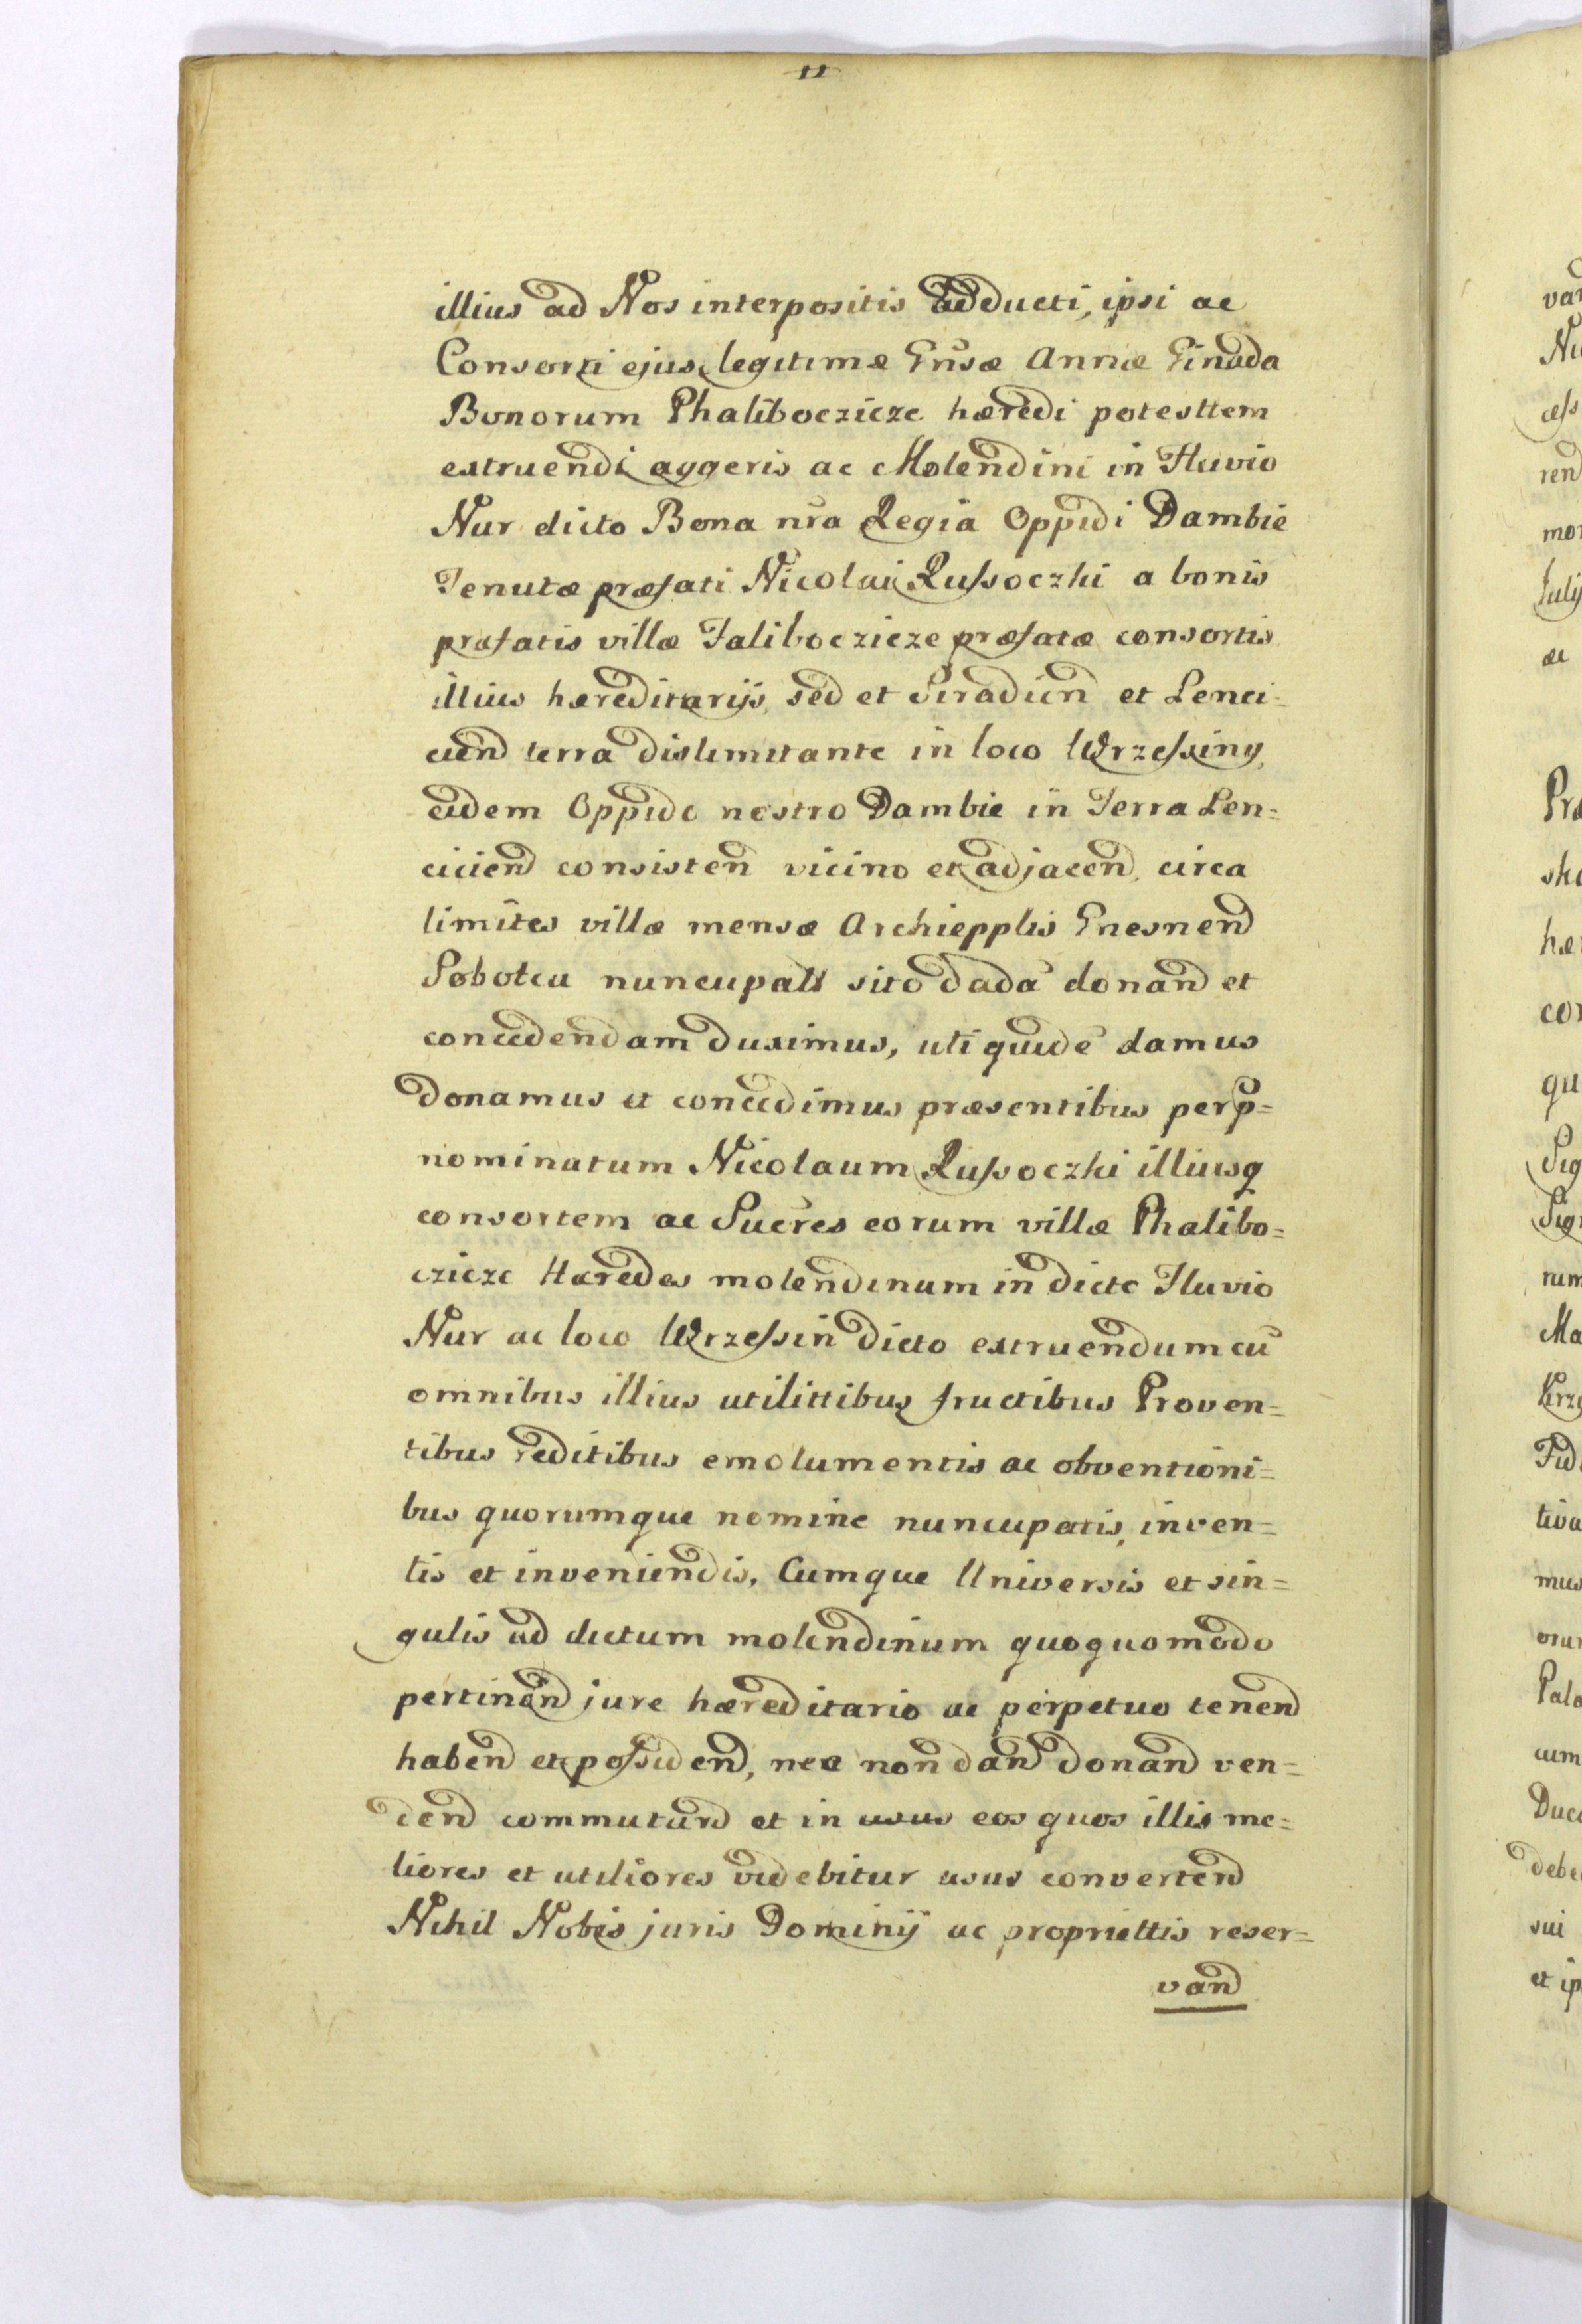 11
illius ad Nos interpositis adducti, ipsi ac
Consorti ejus legitimæ Gnsæ Annæ
Bonorum Phaliboczicze hæredi potesttem
extruendi aggeris ac Molendini in Fluvio
Nur dicto Bona nra Regia Oppidi Dambie
Tenutæ præfati Nicolai Russoczki a bonis
præfatis villæ Faliboczicze præfatæ consortis
illius hæreditarijs, sed et Siradien et Lenci=
cien terra dislimitante in loco Wrzessiny,
eidem Oppido nostro Dambie in Terra Len=
cicien consisten vicino et adjacen, circa
limites villæ mensæ Archiepplis Gnesnen
Sobotca nuncupatt sito dadā donand et
concedendam duximus, uti quidē damus
donamus et concedimus præsentibus perp=
nominatum Nicolaum Russoczki illiusq
consortem ac Sucres eorum villæ Phalibo=
czicze Hæredes molendinum in dicto Fluvio
Nur ac loco Wrzessin dicto extruendum cū
omnibus illius utilittibus fructibus Proven=
tibus reditibus emolumentis ac obventioni=
bus quorumque nomine nuncupatis, inven=
tis et inveniendis, Cumque Universis et sin=
gulis ad dictum molendinum quoquomodo
pertinen jure hæreditario ac perpetuo tenend
habend et possidend, nec non dand donand ven=
dend commutand et in usus eos quos illis me=
liores et utiliores videbitur usus convertend
Nihil Nobis juris Dominij ac propriettis reser=
vand